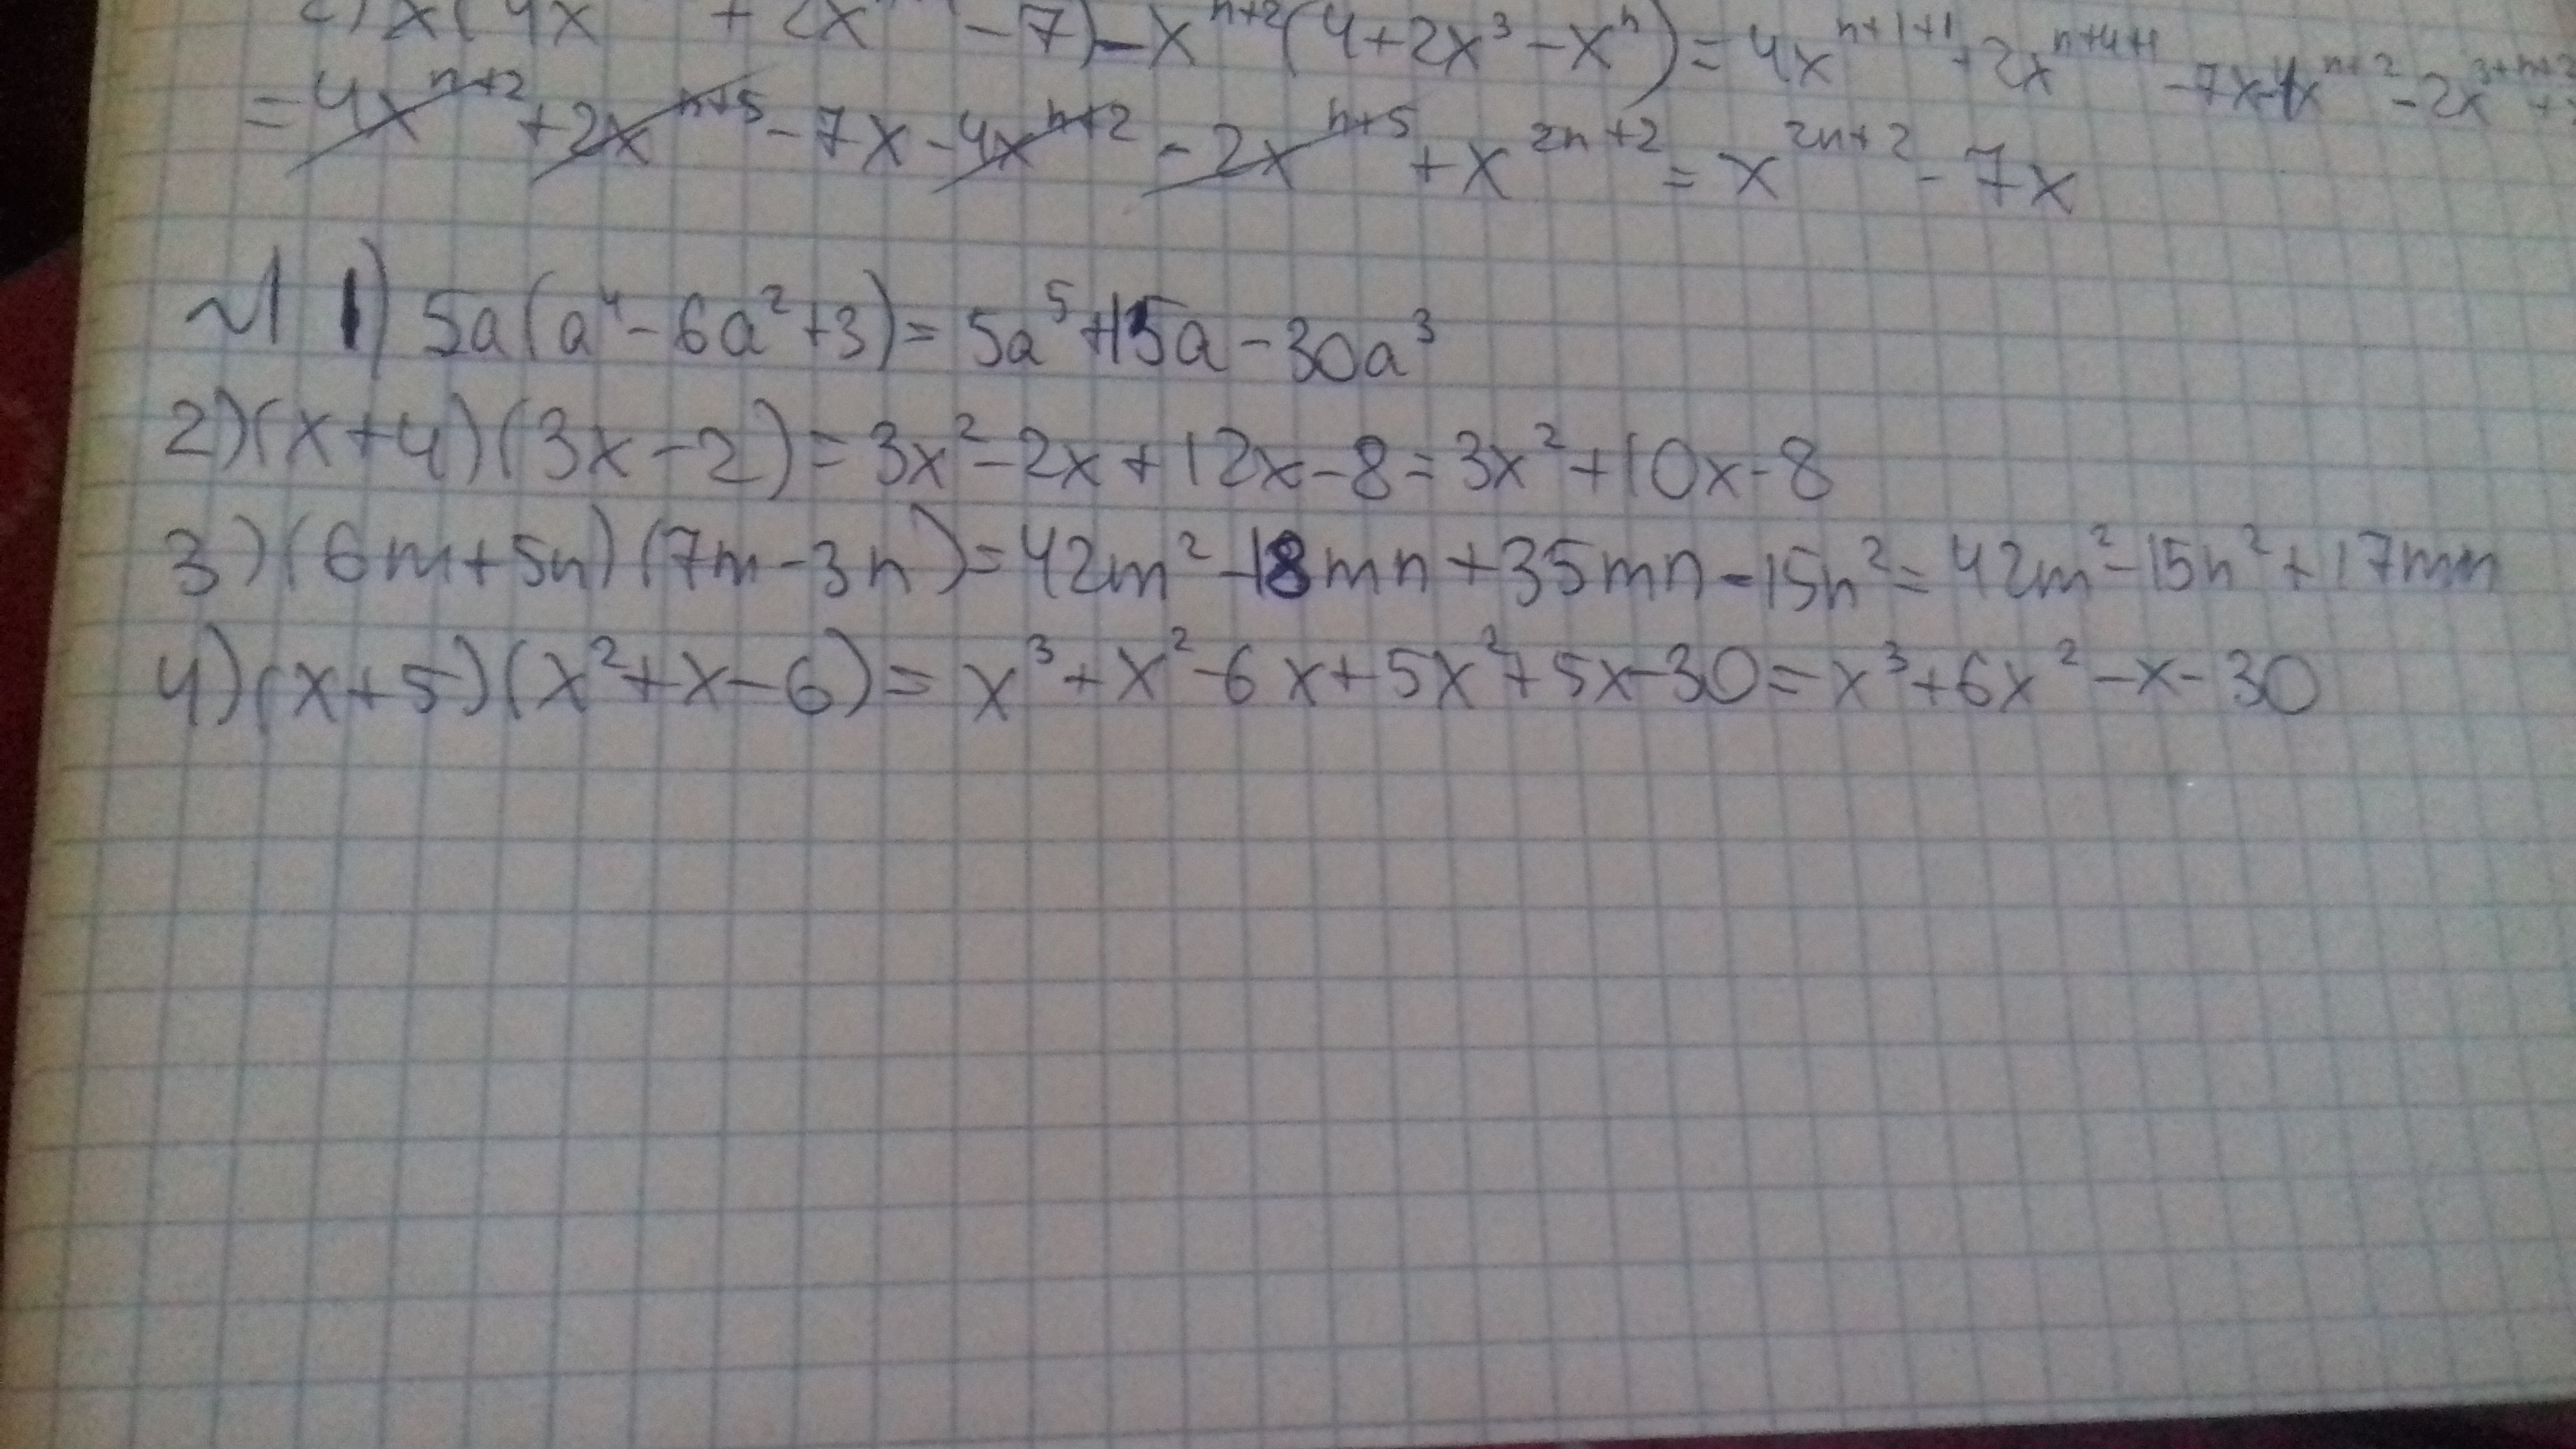 2) x(4x + 2x - 7) - xⁿ⁺²(4+2x³-xⁿ) = 4xⁿ⁺¹⁺¹+2xⁿ⁺⁴⁺¹-7x-4xⁿ⁺²-2x³⁺ⁿ⁺²+
=4xⁿ⁺²+2xⁿ⁺⁵-7x-4xⁿ⁺²-2xⁿ⁺⁵+x²ⁿ⁺²=x²ⁿ⁺²-7x
№1 1) 5a(a⁴-6a²+3)=5a⁵+15a-30a³
2)(x+4)(3x-2)=3x²-2x+12x-8=3x²+10x-8
3)(6m+5n)(7m-3n)=42m²-18mn+35mn-15n²=42m²-15n²+17mn
4)(x+5)(x²+x-6)=x³+x²-6x+5x²+5x-30=x³+6x²-x-30